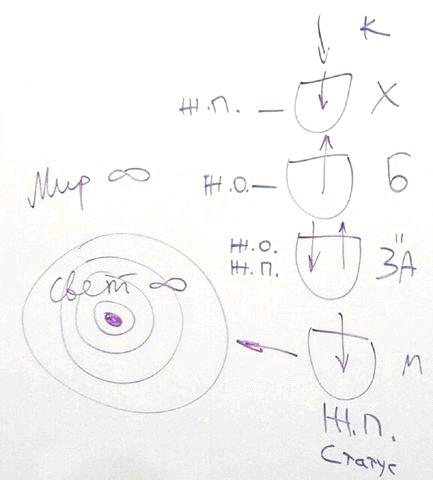 К
Ж.П. — Х
Мир ∞
Ж.О. — Б
Ж.О.
Ж.П.
З"А
свет ∞
м
Ж.П.
Статус